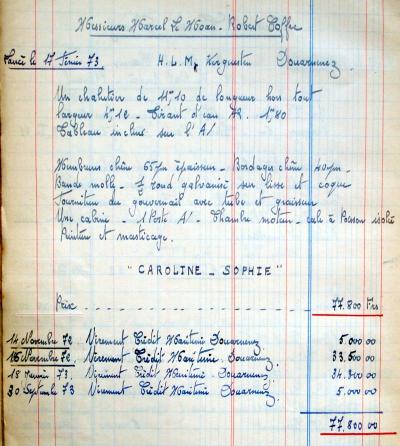 Messieurs Marcel Le Moan - Robert Coffre
Lancé le 17 Février 73. H.L.M. Kerguesten Douarnenez.
Un chalutier de 11,10 de longueur hors tout
largeur 4,12 - Tirant d'eau AR. 1,80
Tableau inclus sur l'A/
Membrures chêne 65 m/m épaisseur - Bordages chêne 40 m/m
Bande molle - ½ rond galvanisé sur lisse et coque
Fourniture du gouvernail avec tube et graisseur
Une cabine - 1 Poste A/ - Chambre moteur - cale à Poisson isolée
Peinture et masticage.
"CAROLINE - SOPHIE"
Prix 77.800 Frs
14 Novembre 72 Virement Crédit Maritime Douarnenez. 5.000 00
15 Novembre 72. Virement Crédit Maritime. Douarnenez. 33.500 00
18 73. Virement Crédit Maritime Douarnenez. 34.300 00
30 Septembre 73 Virement Crédit Maritime Douarnenez. 5.000 00
77.800 00